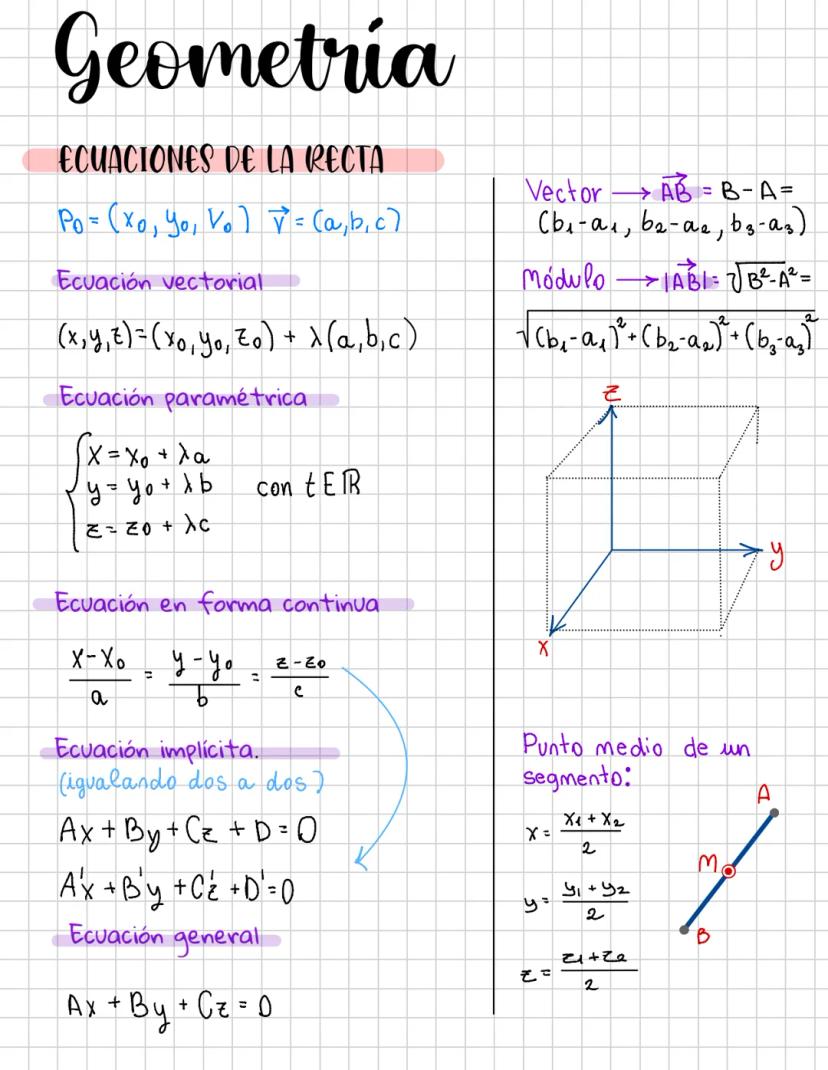 Geometría
ECUACIONES DE LA RECTA
P₀ = (x₀, y₀, V₀) v⃗ = (a,b,c)
Ecuación vectorial
(x,y,z)=(x₀,y₀,z₀) + λ(a,b,c)
Ecuación paramétrica
x = x₀ + λa
y = y₀ + λb con t E ℝ
z = z₀ + λc
Ecuación en forma continua
(x-x₀)/a = (y-y₀)/b = (z-z₀)/c
Ecuación implícita.
(igualando dos a dos)
Ax + By + Cz + D = 0
A'x + B'y + C'z + D' = 0
Ecuación general
Ax + By + Cz = 0
Vector → AB⃗ = B - A =
(b₁-a₁, b₂-a₂, b₃-a₃)
Módulo → |AB⃗| = √(B²-A²) =
√((b₁-a₁)²+(b₂-a₂)²+(b₃-a₃)²)
z
y
x
Punto medio de un
segmento:
x = (x₁ + x₂)/2
y = (y₁ + y₂)/2
z = (z₁ + z₂)/2
A
M
B